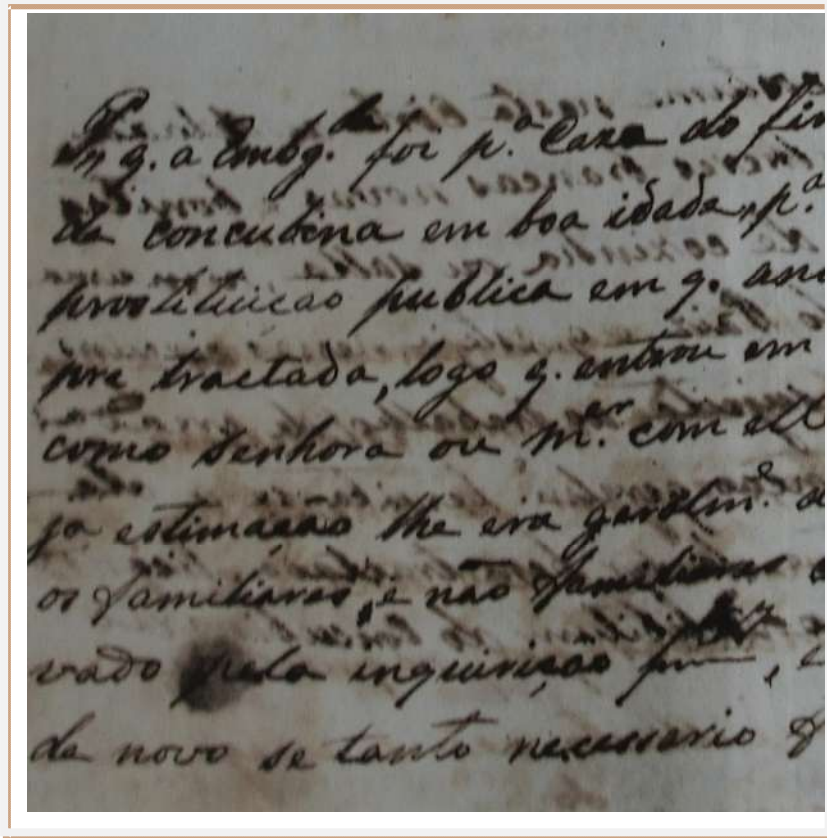 P. q. a Embg.da foi p.a Caza do fin
de concubina em boa idade, p.a
prostituicao publica em q. and
pre tractada, logo q. entrou em
como senhora ou m.er com ell
ja estimaçao lhe era geralm.e
os familiares, e não familiares
vado pela inquirição
de novo se tanto necessario